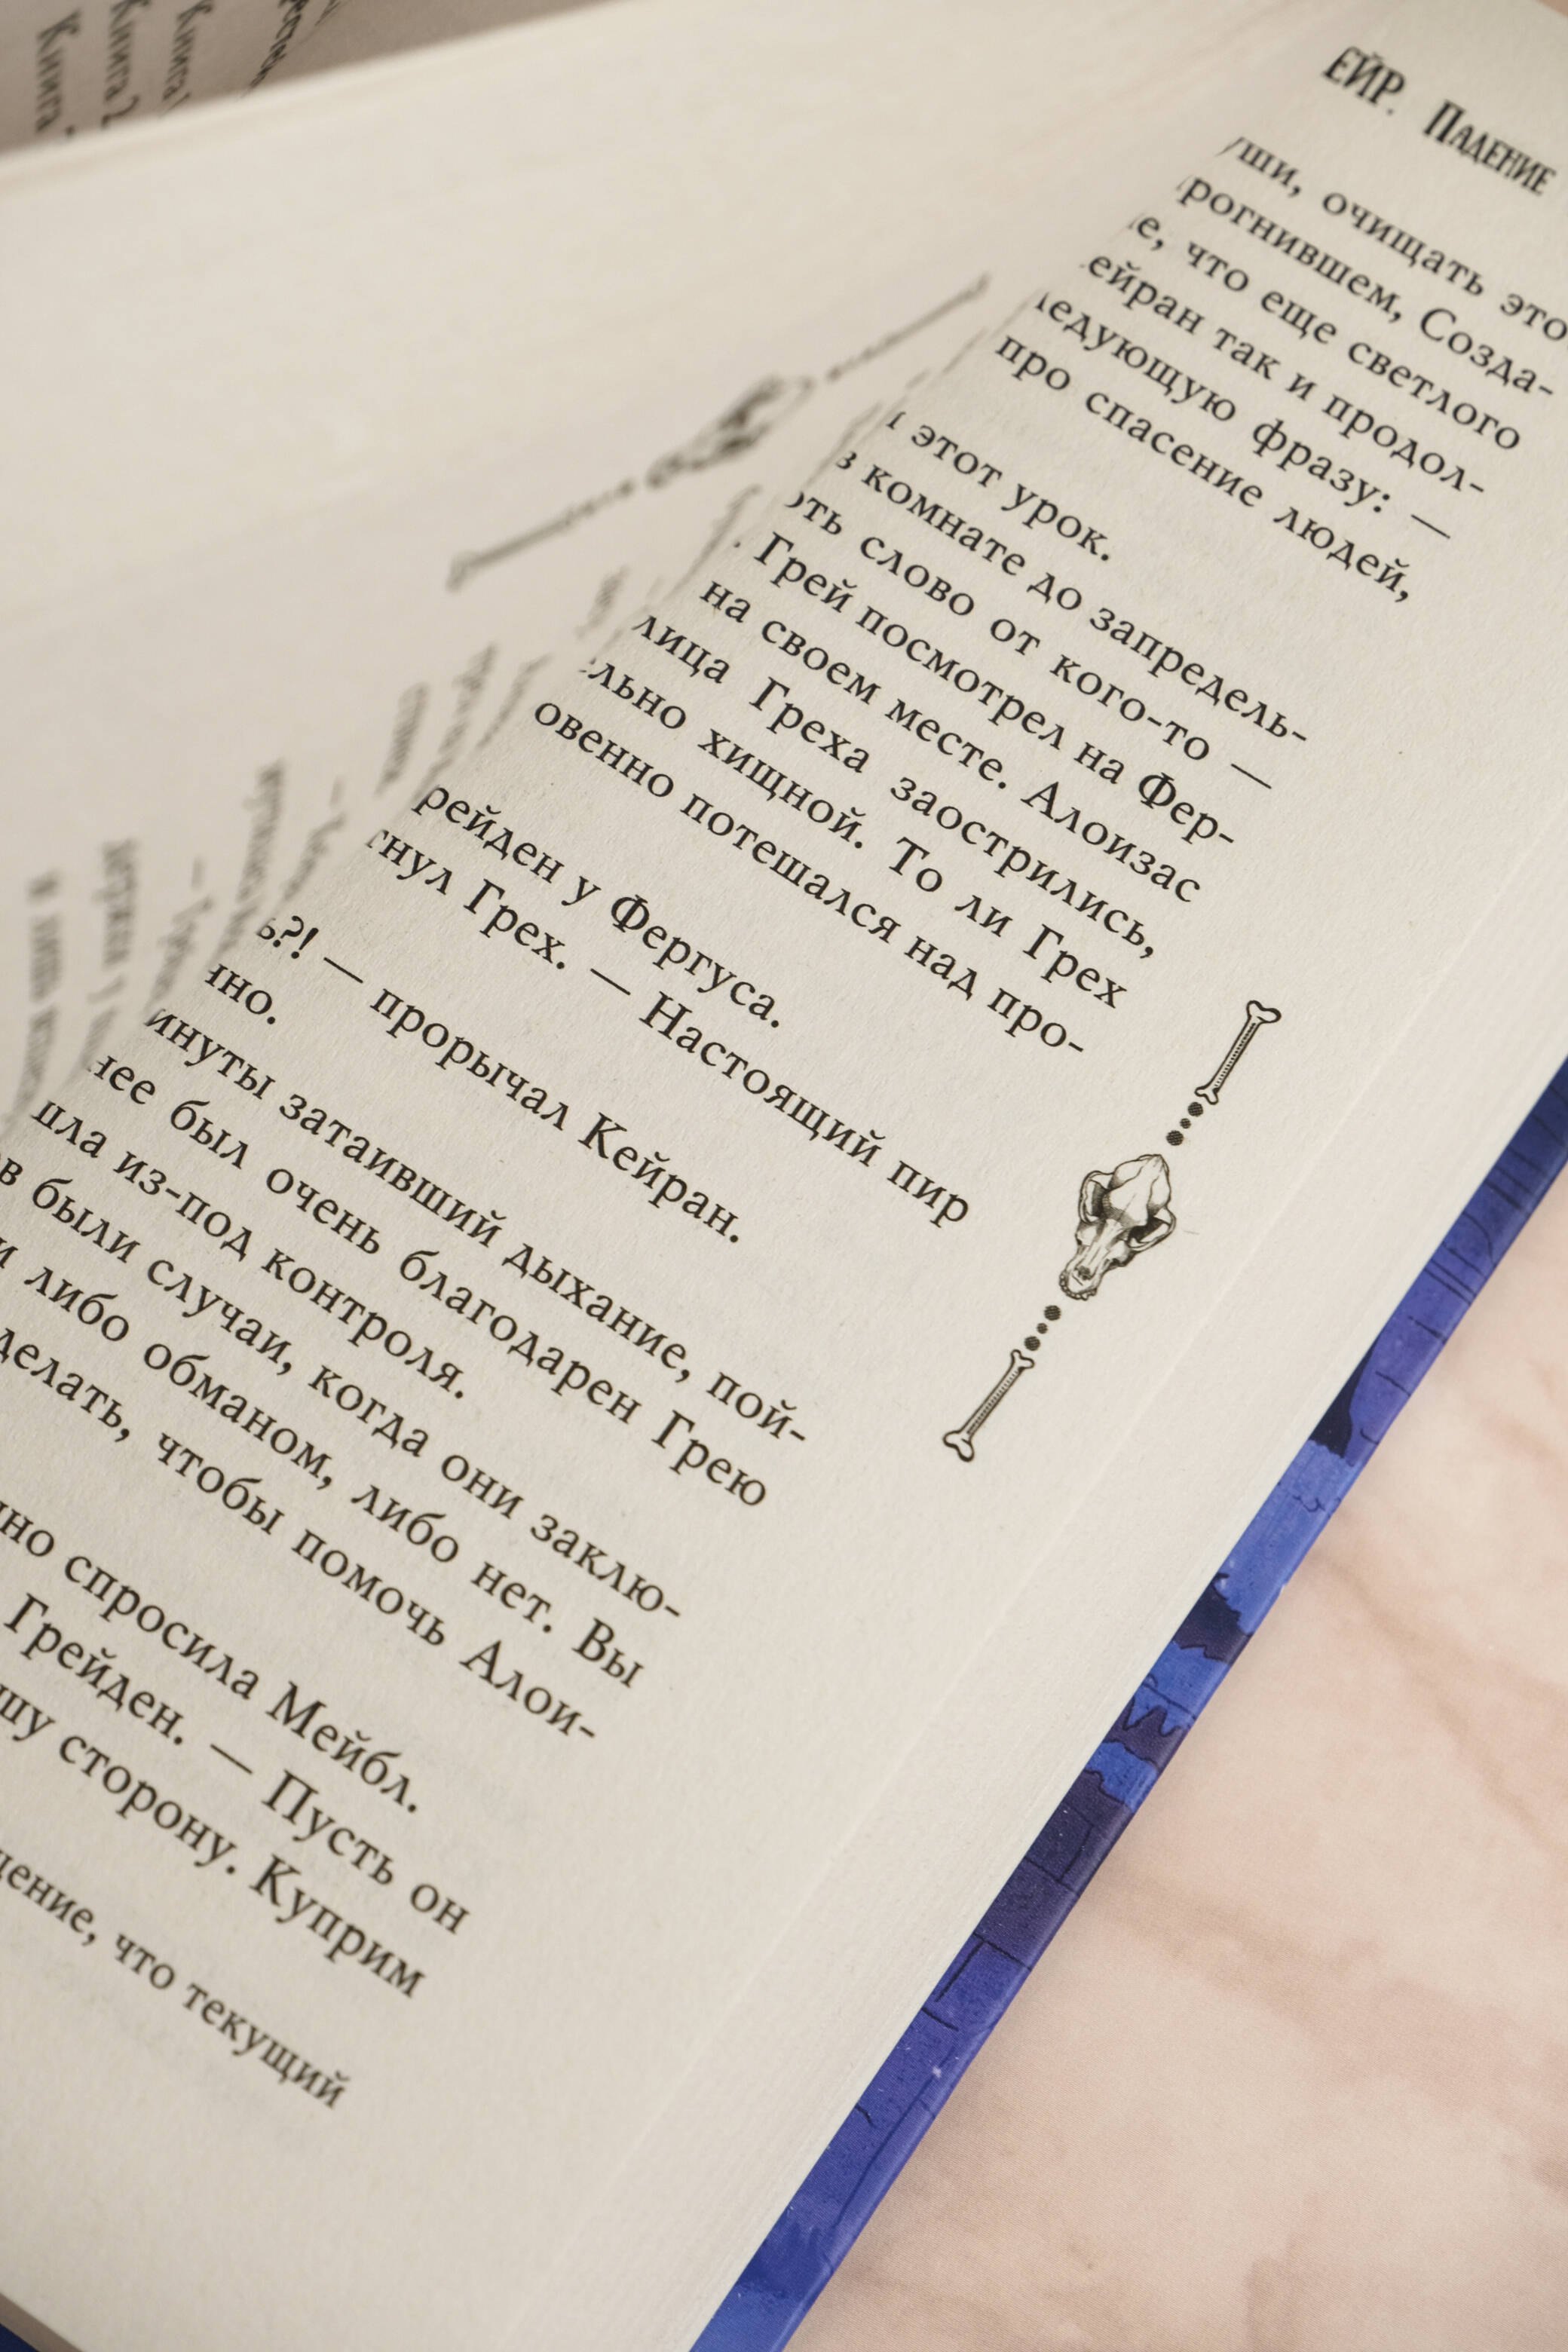 Книга
Книга 2
Книга
ЕЙР. Падение
очищать это
рогнившем, Созда-
что еще светлого
ейран так и продол-
ледующую фразу: —
про спасение людей,
этот урок.
в комнате до запредель-
слово от кого-то —
Грей посмотрел на Фер-
на своем месте. Алоизас
лица Греха заострились,
льно хищной. То ли Грех
овенно потешался над про-
рейден у Фергуса.
гнул Грех. — Настоящий пир
ь?! — прорычал Кейран.
нно.
инуты затаивший дыхание, пой-
нее был очень благодарен Грею
пла из-под контроля.
в были случаи, когда они заклю-
и либо обманом, либо нет. Вы
делать, чтобы помочь Алои-
но спросила Мейбл.
Грейден. — Пусть он
шу сторону. Куприм
щение, что текущий